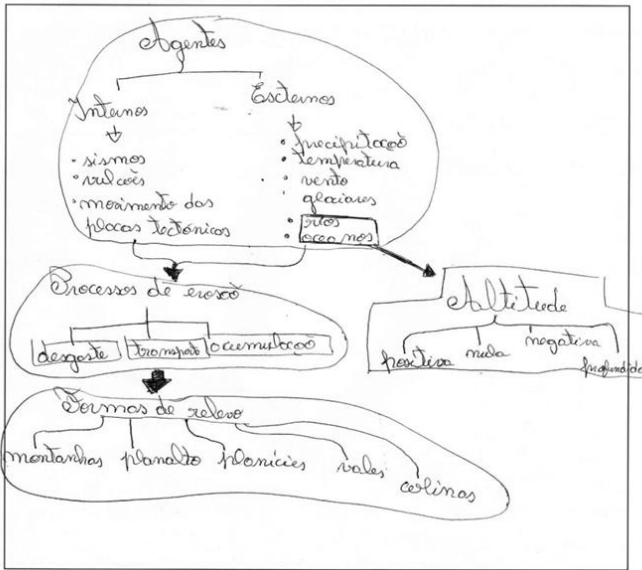 Agentes
Internos
Externos
• sismos
• vulcões
• movimento das
placas tectónicas
• precipitação
• temperatura
• vento
• glaciares
• rios
• oceanos
Processos de erosão
desgaste transporte acumulação
Altitude
positiva nula negativa
Formas de relevo
montanhas planalto planícies vales colinas